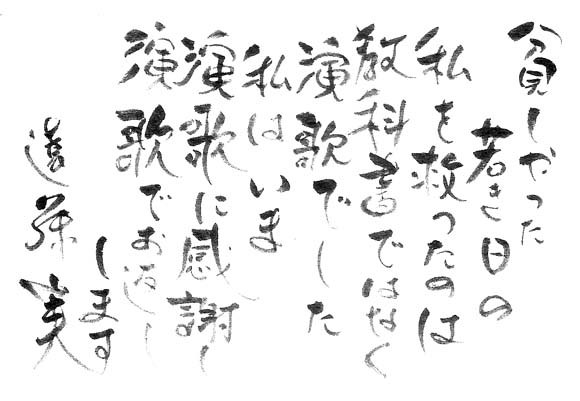 貧しかった
若き日の
私を救ったのは
教科書ではなく
演歌でした
私はいま
演歌に感謝し
演歌でお返し
します
遠藤実